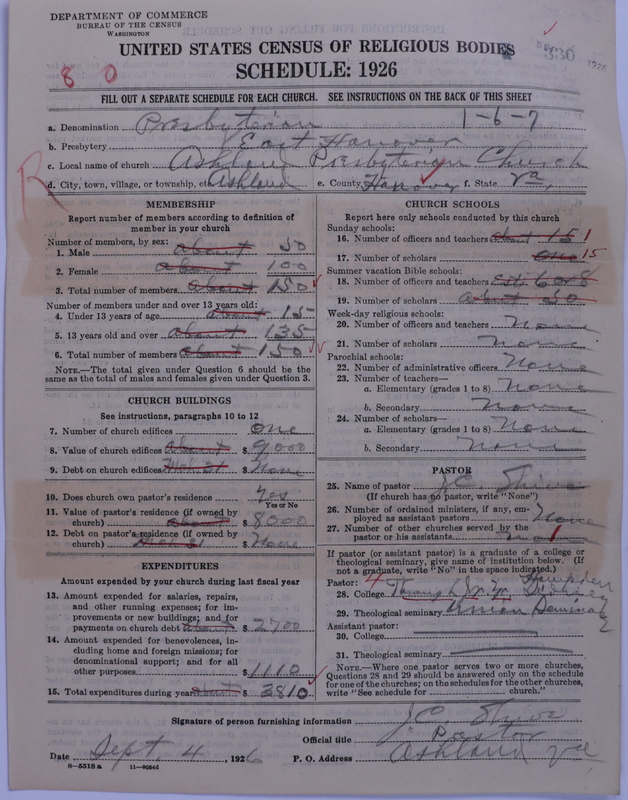 DEPARTMENT OF COMMERCE
BUREAU OF THE CENSUS
WASHINGTON
UNITED STATES CENSUS OF RELIGIOUS BODIES
SCHEDULE: 1926
8 0
FILL OUT A SEPARATE SCHEDULE FOR EACH CHURCH. SEE INSTRUCTIONS ON THE BACK OF THIS SHEET
a. Denomination Presbyterian 1-6-7
b. Presbytery East Hanover
c. Local name of church Ashland Presbyterian Church
d. City, town, village, or township, etc. Ashland e. County Hanover f. State Va.
R
MEMBERSHIP
Report number of members according to definition of member in your church
Number of members, by sex:
1. Male about 50
2. Female about 100
3. Total number of members about 150
Number of members under and over 13 years old:
4. Under 13 years of age about 15
5. 13 years old and over about 135
6. Total number of members about 150
NOTE.—The total given under Question 6 should be the same as the total of males and females given under Question 3.
CHURCH BUILDINGS
See instructions, paragraphs 10 to 12
7. Number of church edifices one
8. Value of church edifices about $ 9000
9. Debt on church edifices $ None
10. Does church own pastor's residence Yes
Yes or No
11. Value of pastor's residence (if owned by church) about $ 8000
12. Debt on pastor's residence (if owned by church) $ None
EXPENDITURES
Amount expended by your church during last fiscal year
13. Amount expended for salaries, repairs, and other running expenses; for improvements or new buildings; and for payments on church debt about $ 2700
14. Amount expended for benevolences, including home and foreign missions; for denominational support; and for all other purposes $ 1110
15. Total expenditures during year about $ 3810
CHURCH SCHOOLS
Report here only schools conducted by this church
Sunday schools:
16. Number of officers and teachers about 15 1
17. Number of scholars 15
Summer vacation Bible schools:
18. Number of officers and teachers Est. 6 or 8
19. Number of scholars about 50
Week-day religious schools:
20. Number of officers and teachers None
21. Number of scholars None
Parochial schools:
22. Number of administrative officers None
23. Number of teachers—
a. Elementary (grades 1 to 8) None
b. Secondary None
24. Number of scholars—
a. Elementary (grades 1 to 8) None
b. Secondary None
PASTOR
25. Name of pastor J.C.
(If church has no pastor, write "None")
26. Number of ordained ministers, if any, employed as assistant pastors None
27. Number of other churches served by the pastor or his assistants 1
If pastor (or assistant pastor) is a graduate of a college or theological seminary, give name of institution below. (If not a graduate, write "No" in the space indicated.)
Pastor: 4
28. College Through Jr. Yr. Hampden Sidney
29. Theological seminary Union Seminary
Assistant pastor:
30. College
31. Theological seminary
NOTE.—Where one pastor serves two or more churches, Questions 28 and 29 should be answered only on the schedule for one of the churches; on the schedules for the other churches, write "See schedule for church."
Signature of person furnishing information J.C.
Official title Pastor
Date Sept. 4, 1926 P. O. Address Ashland Va
8—5518 a 11—9054d